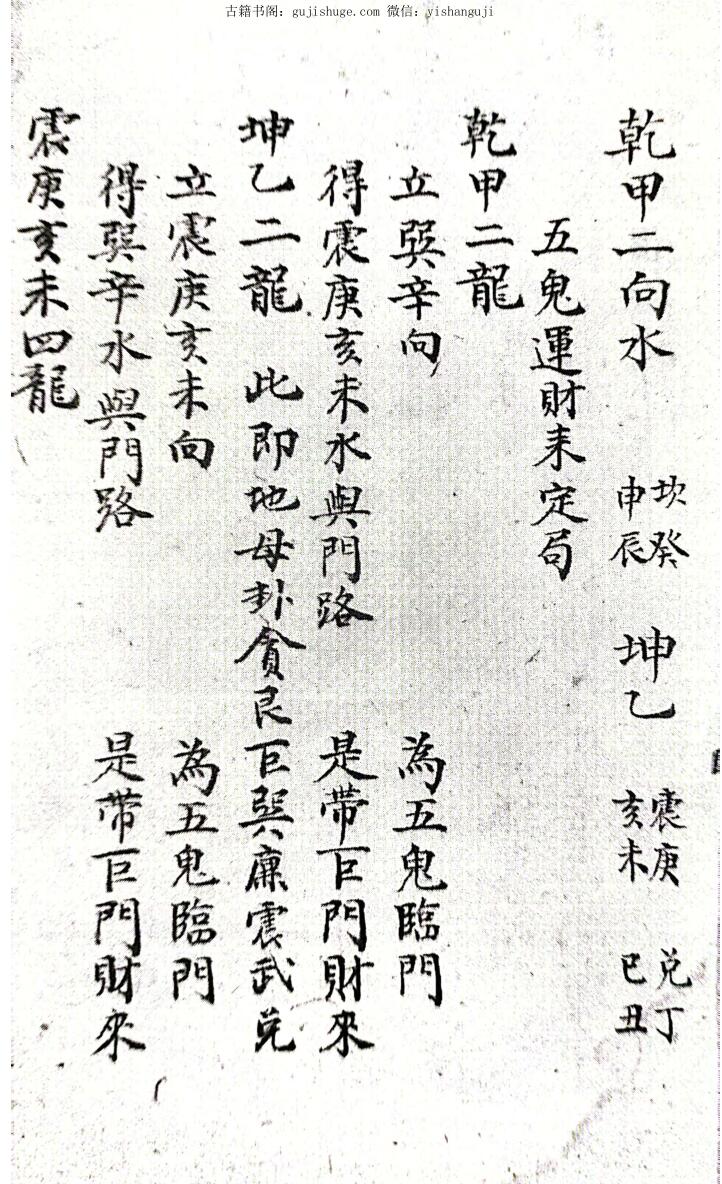 古籍书阁：gujishuge.com 微信：yishanguji
乾甲二向水 坎癸申辰 坤乙 震庚亥未 兑丁巳丑
五鬼運財来定局
乾甲二龍
立巽辛向 為五鬼臨門
得震庚亥未水與門路 是帶巨門財來
坤乙二龍 此即地母卦貪艮巨巽廉震武兑
立震庚亥未向 為五鬼臨門
得巽辛水與門路 是帶巨門財來
震庚亥未四龍